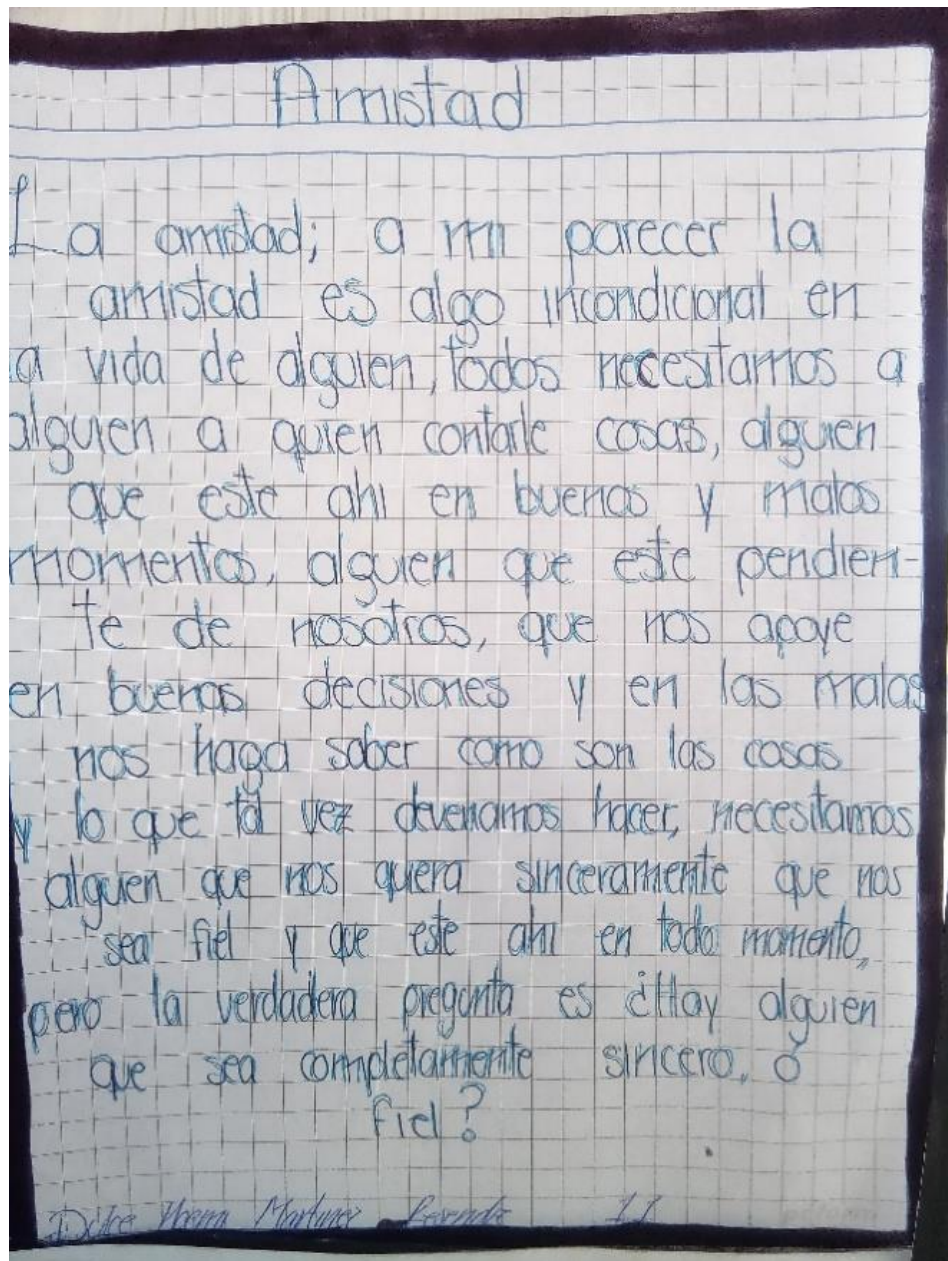 Amistad
La amistad; a mi parecer la
amistad es algo incondicional en
la vida de alguien, todos necesitamos a
alguien a quien contarle cosas, alguien
que este ahi en buenos y malos
momentos, alguien que este pendien-
te de nosotros, que nos apoye
en buenas decisiones y en las malas
nos haga saber como son las cosas
y lo que tal vez deveriamos hacer, necesitamos
alguien que nos quiera sinceramente que nos
sea fiel y que este ahi en todo momento,
pero la verdadera pregunta es ¿Hay alguien
que sea completamente sincero, ó
fiel?
Dulce Martinez 11